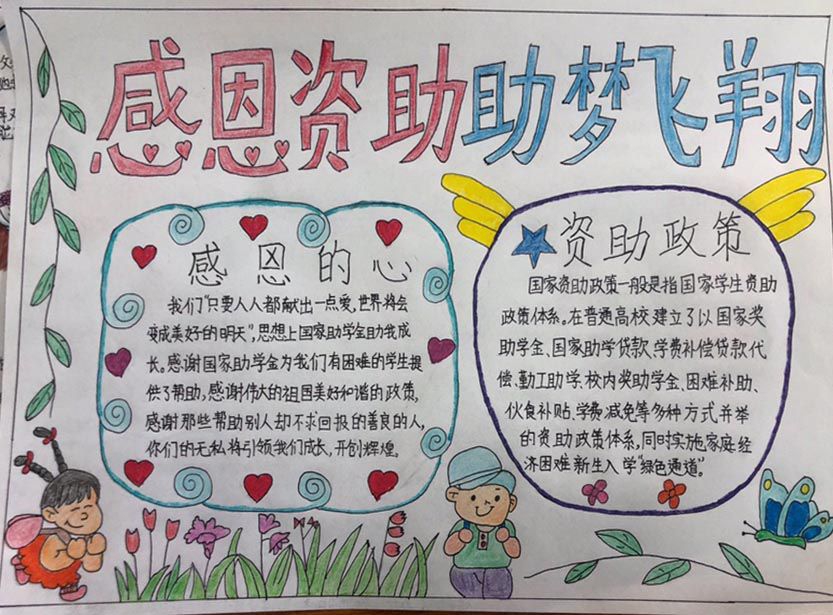 感恩资助助梦飞翔
感恩的心
我们"只要人人都献出一点爱,世界将会
变成美好的明天",思想上国家助学金助我成
长。感谢国家助学金为我们有困难的学生提
供了帮助,感谢伟大的祖国美好和谐的政策,
感谢那些帮助别人却不求回报的善良的人,
你们的无私将引领我们成长,开创辉煌。
资助政策
国家资助政策一般是指国家学生资助
政策体系。在普通高校建立了以国家奖
助学金、国家助学贷款、学费补偿贷款代
偿、勤工助学、校内奖助学金、困难补助、
伙食补贴、学费减免等多种方式并举
的资助政策体系,同时实施家庭经
济困难新生入学"绿色通道"。